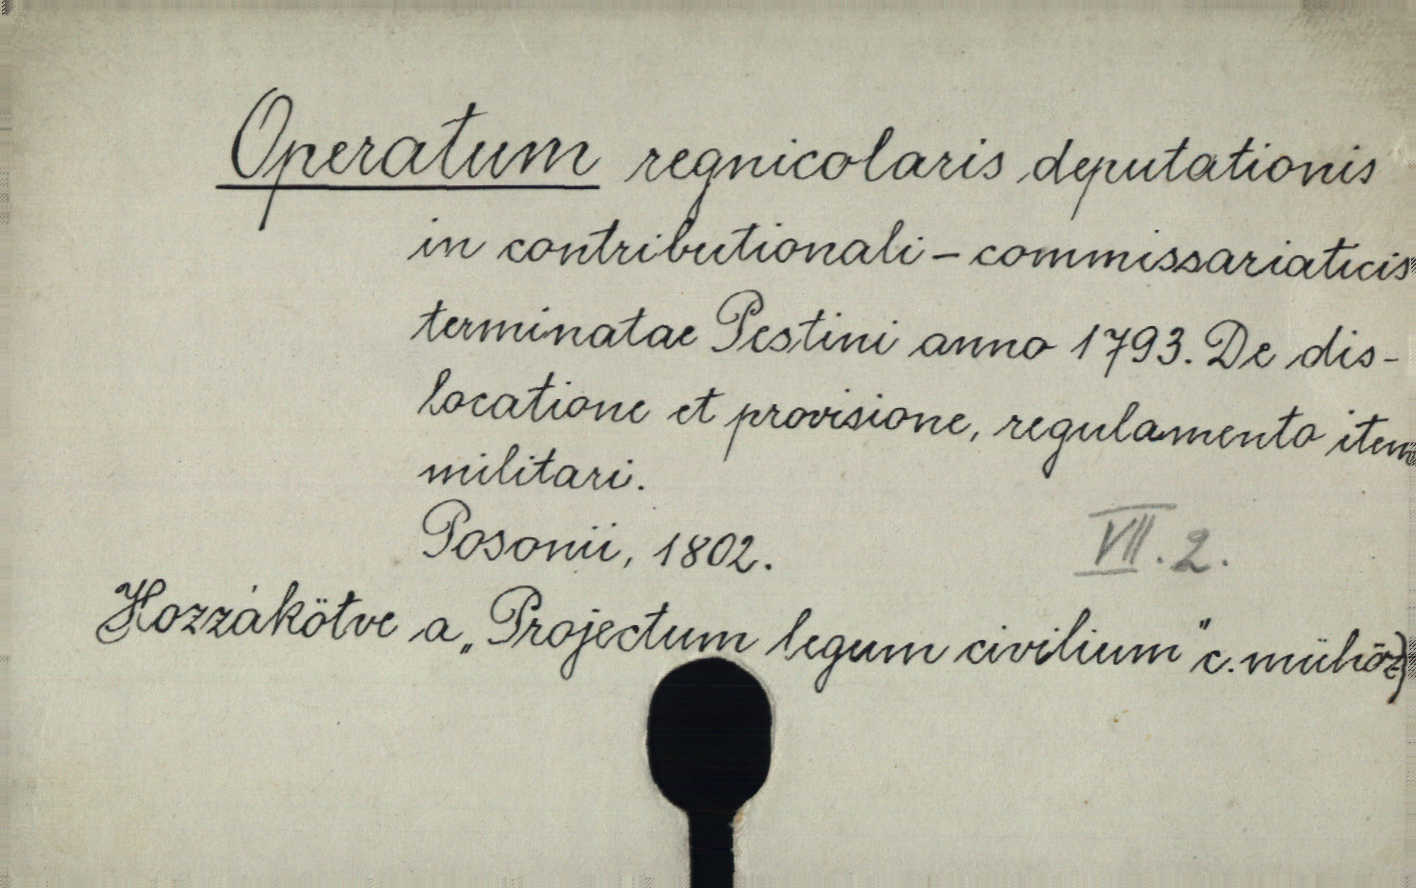 Operatum regnicolaris deputationis
in contributionali-commissariaticis
terminatae Pestini anno 1793. De dis-
locatione et provisione, regulamento item
militari.
Posonii, 1802.
VII. 2.
Hozzákötve a „Projectum legum civilium" c. műhöz)